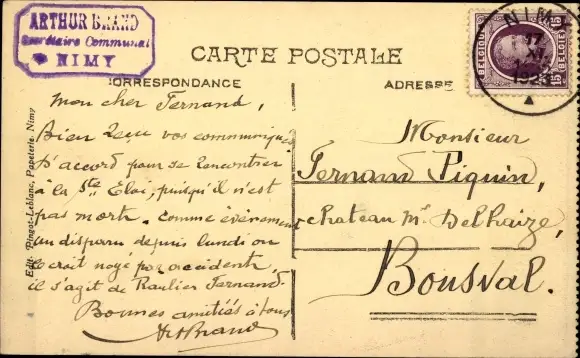 ARTHUR BRAND
Secrétaire Communal
NIMY
CARTE POSTALE
CORRESPONDANCE
ADRESSE
NIMY
17
XI
1923
BELGIQUE
BELGIË
15
Mon cher Fernand,
Bien reçu vos communiqués
D'accord pour se rencontrer
à la Ste Eloi, puisqu'il n'est
pas mort. Comme évènement
un disparu depuis lundi on
le croit noyé par accident,
il s'agit de Raulier Fernand.
Bonnes amitiés à tous
Art Brand
Monsieur
Fernand Piquin,
chateau Mr Delhaize,
Bousval.
Edit. Pingot-Leblanc, Papeterie, Nimy